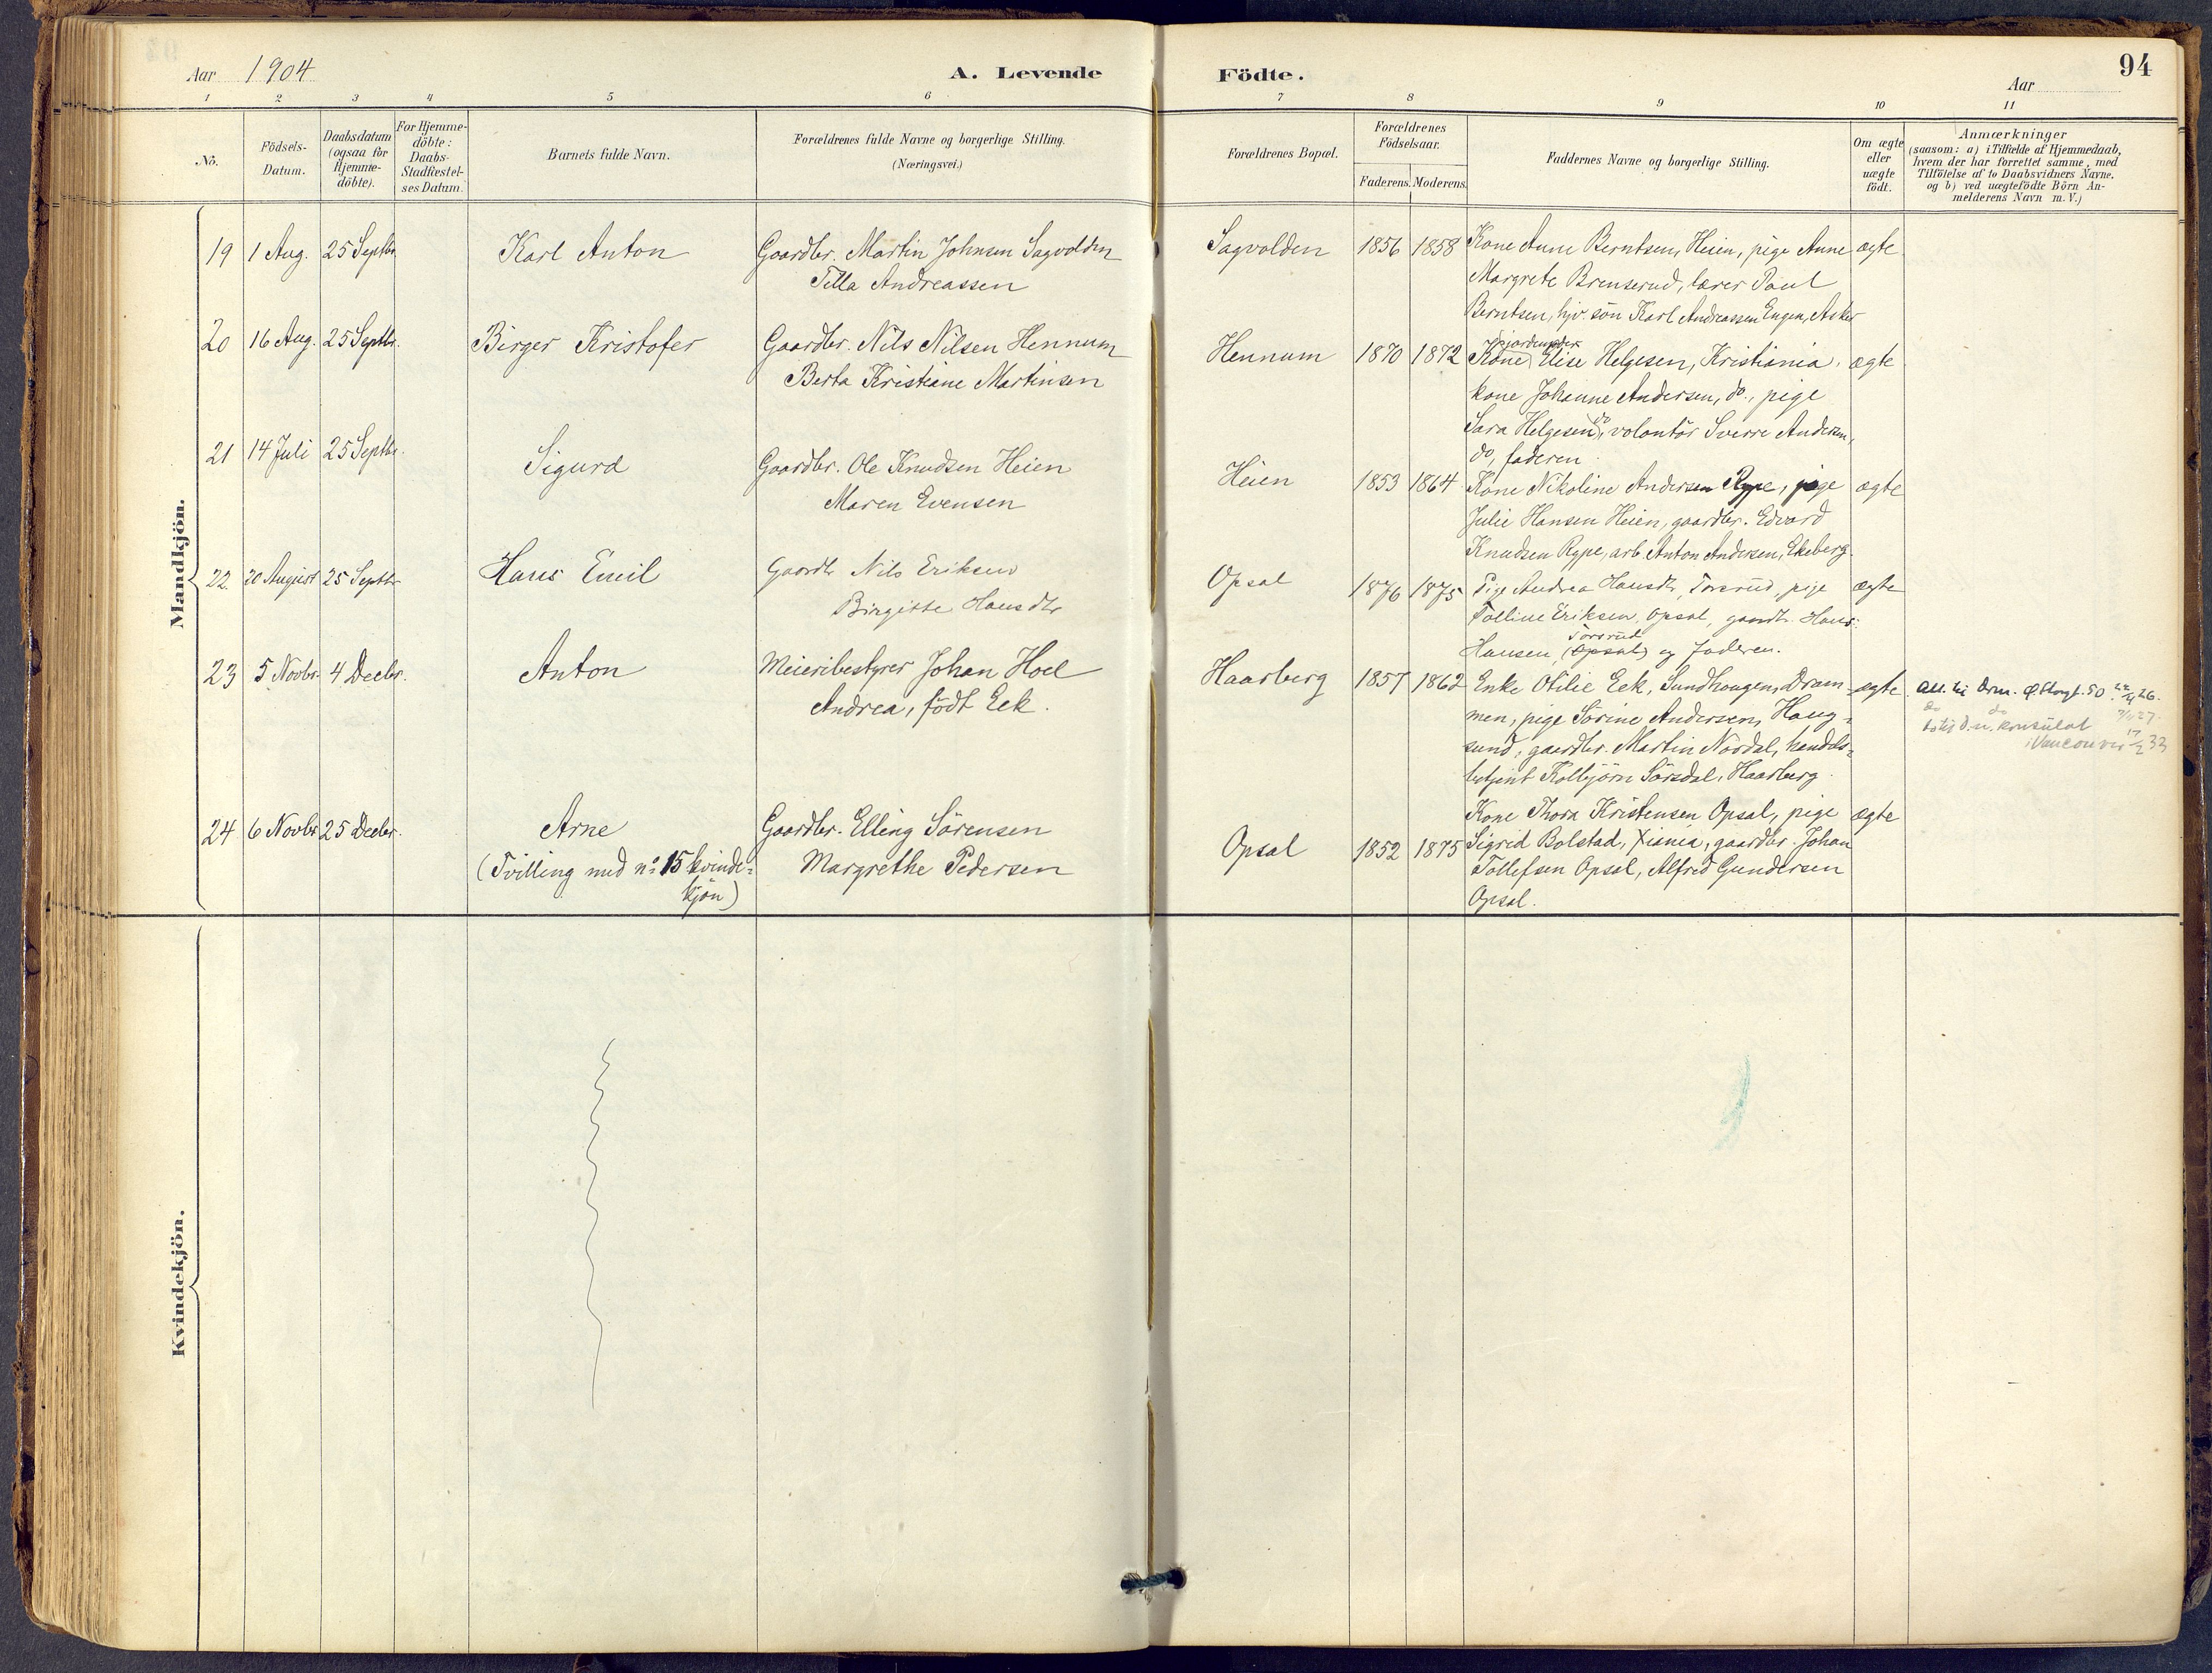 Aar 1904
A. Levende Födte.
Aar
94
1 2 3 4 5 6 7 8 9 10 11
No.
Födsels-Datum.
Daabsdatum (ogsaa for Hjemme-döbte).
For Hjemme-döbte: Daabs-Stadfæstel-ses Datum.
Barnets fulde Navn.
Forældrenes fulde Navne og borgerlige Stilling.
(Næringsvei.)
Forældrenes Bopæl.
Forældrenes Födselsaar.
Faderens. Moderens.
Faddernes Navne og borgerlige Stilling.
Om ægte eller uægte födt.
Anmærkninger
(saasom: a) i Tilfælde af Hjemmedaab,
hvem der har forrettet samme, med
Tilföielse af to Daabsvidners Navne.
og b) ved uægtefödte Börn An-
melderens Navn m. V.)
Mandkjön.
19 1 Aug. 25 Septbr. Karl Anton Gaardbr. Martin Johnsen Sagvolden
Tilla Andreassen
Sagvolden 1856 1858 Kone Anne Berntsen, Heien, pige Anne ægte
Margrete Brenserud, lærer Paul
Berntsen, hjv. sön Karl Andreassen Engen, Asker
20 16 Aug. 25 Septbr. Birger Kristofer Gaardbr. Nils Nilsen Hennum
Berta Kristiane Martinsen
Hennum 1870 1872 Kone Elise Helgesen, Kristiania, ægte
kone Johanne Andersen, do., pige
Sara Helgesen, do, volontör Sverre Andersen,
do, faderen.
21 14 Juli 25 Septbr. Sigurd Gaardbr. Ole Knudsen Heien
Maren Evensen
Heien 1853 1864 Kone Nikoline Andersen Rype, pige ægte
Julie Hansen Heien, gaardbr. Edvard
Knudsen Rype, arb. Anton Andersen, Ekeberg.
22. 20 August 25 Septbr Hans Emil Gaardb Nils Eriksen
Birgitte Hansdtr
Opsal 1876 1875 Pige Andrea Hansdtr, Torsrud, pige ægte
Tolline Eriksen, Opsal, gaardb. Hans
Torsrud
Hansen, (Opsal) og Faderen.
23 5 Novbr. 4 Decbr. Anton Meieribestyrer Johan Hoel
Andrea, födt Eek.
Haarberg 1857 1862 Enke Otilie Eek, Sundhaugen, Dram- ægte
men, pige Sörine Andersen, Haug-
sund, gaardbr. Martin Nordal, handels-
betjent Kolbjörn Sörsdal, Haarberg.
do do
konsulat
i Vancouver 17/2 33
24 6 Novbr 25 Decbr. Arne Gaardbr. Elling Sörensen
(Tvilling med no 15 kvinde- Margrethe Pedersen
kjön)
Opsal 1852 1875 Kone Thora Kristensen Opsal, pige ægte
Sigrid Bolstad, Xiania, gaardbr. Johan
Tollefsen Opsal, Alfred Gundersen
Opsal.
Kvindekjön.